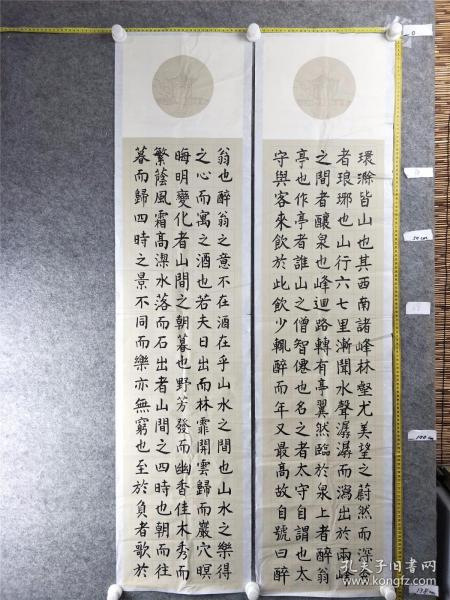 環滁皆山也其西南諸峰林壑尤美望之蔚然而深秀
者琅琊也山行六七里漸聞水聲潺潺而瀉出於兩峰
之間者釀泉也峰迴路轉有亭翼然臨於泉上者醉翁
亭也作亭者誰山之僧智僊也名之者太守自謂也太
守與客來飲於此飲少輒醉而年又最高故自號曰醉
翁也醉翁之意不在酒在乎山水之間也山水之樂得
之心而寓之酒也若夫日出而林霏開雲歸而巖穴暝
晦明變化者山間之朝暮也野芳發而幽香佳木秀而
繁蔭風霜高潔水落而石出者山間之四時也朝而往
暮而歸四時之景不同而樂亦無窮也至於負者歌於
0
50cm
100cm
孔夫子旧书网
kongfz.com